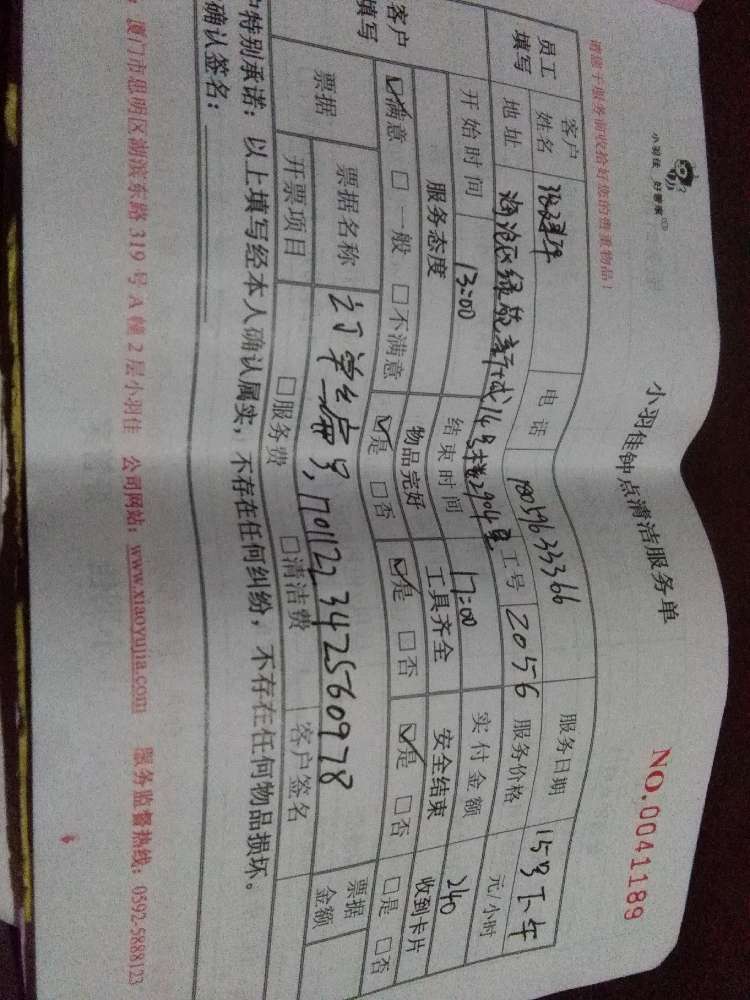 小羽佳 好管家
小羽佳钟点清洁服务单
NO.0041189
请您于服务前收拾好您的贵重物品！
员工填写
客户姓名
电话 18059633366
服务日期 15号下午
地址 海沧区绿苑新城14号楼2904室
工号 2056
服务价格 元/小时
开始时间 13:00
结束时间 17:00
实付金额 240
客户填写
服务态度 物品完好 工具齐全 安全结束 收到卡片
☑满意 □一般 □不满意 ☑是 □否 ☑是 □否 ☑是 □否 □是 □否
票据
票据名称 订单编号,170112234256097８
票据金额
开票项目 □服务费 □清洁费 客户签名
户特别承诺：以上填写经本人确认属实，不存在任何纠纷，不存在任何物品损坏。
确认签名：
厦门市思明区湖滨东路319号A幢2层小羽佳 公司网站：www.xiaoyujia.com 服务监督热线：0592-5888123